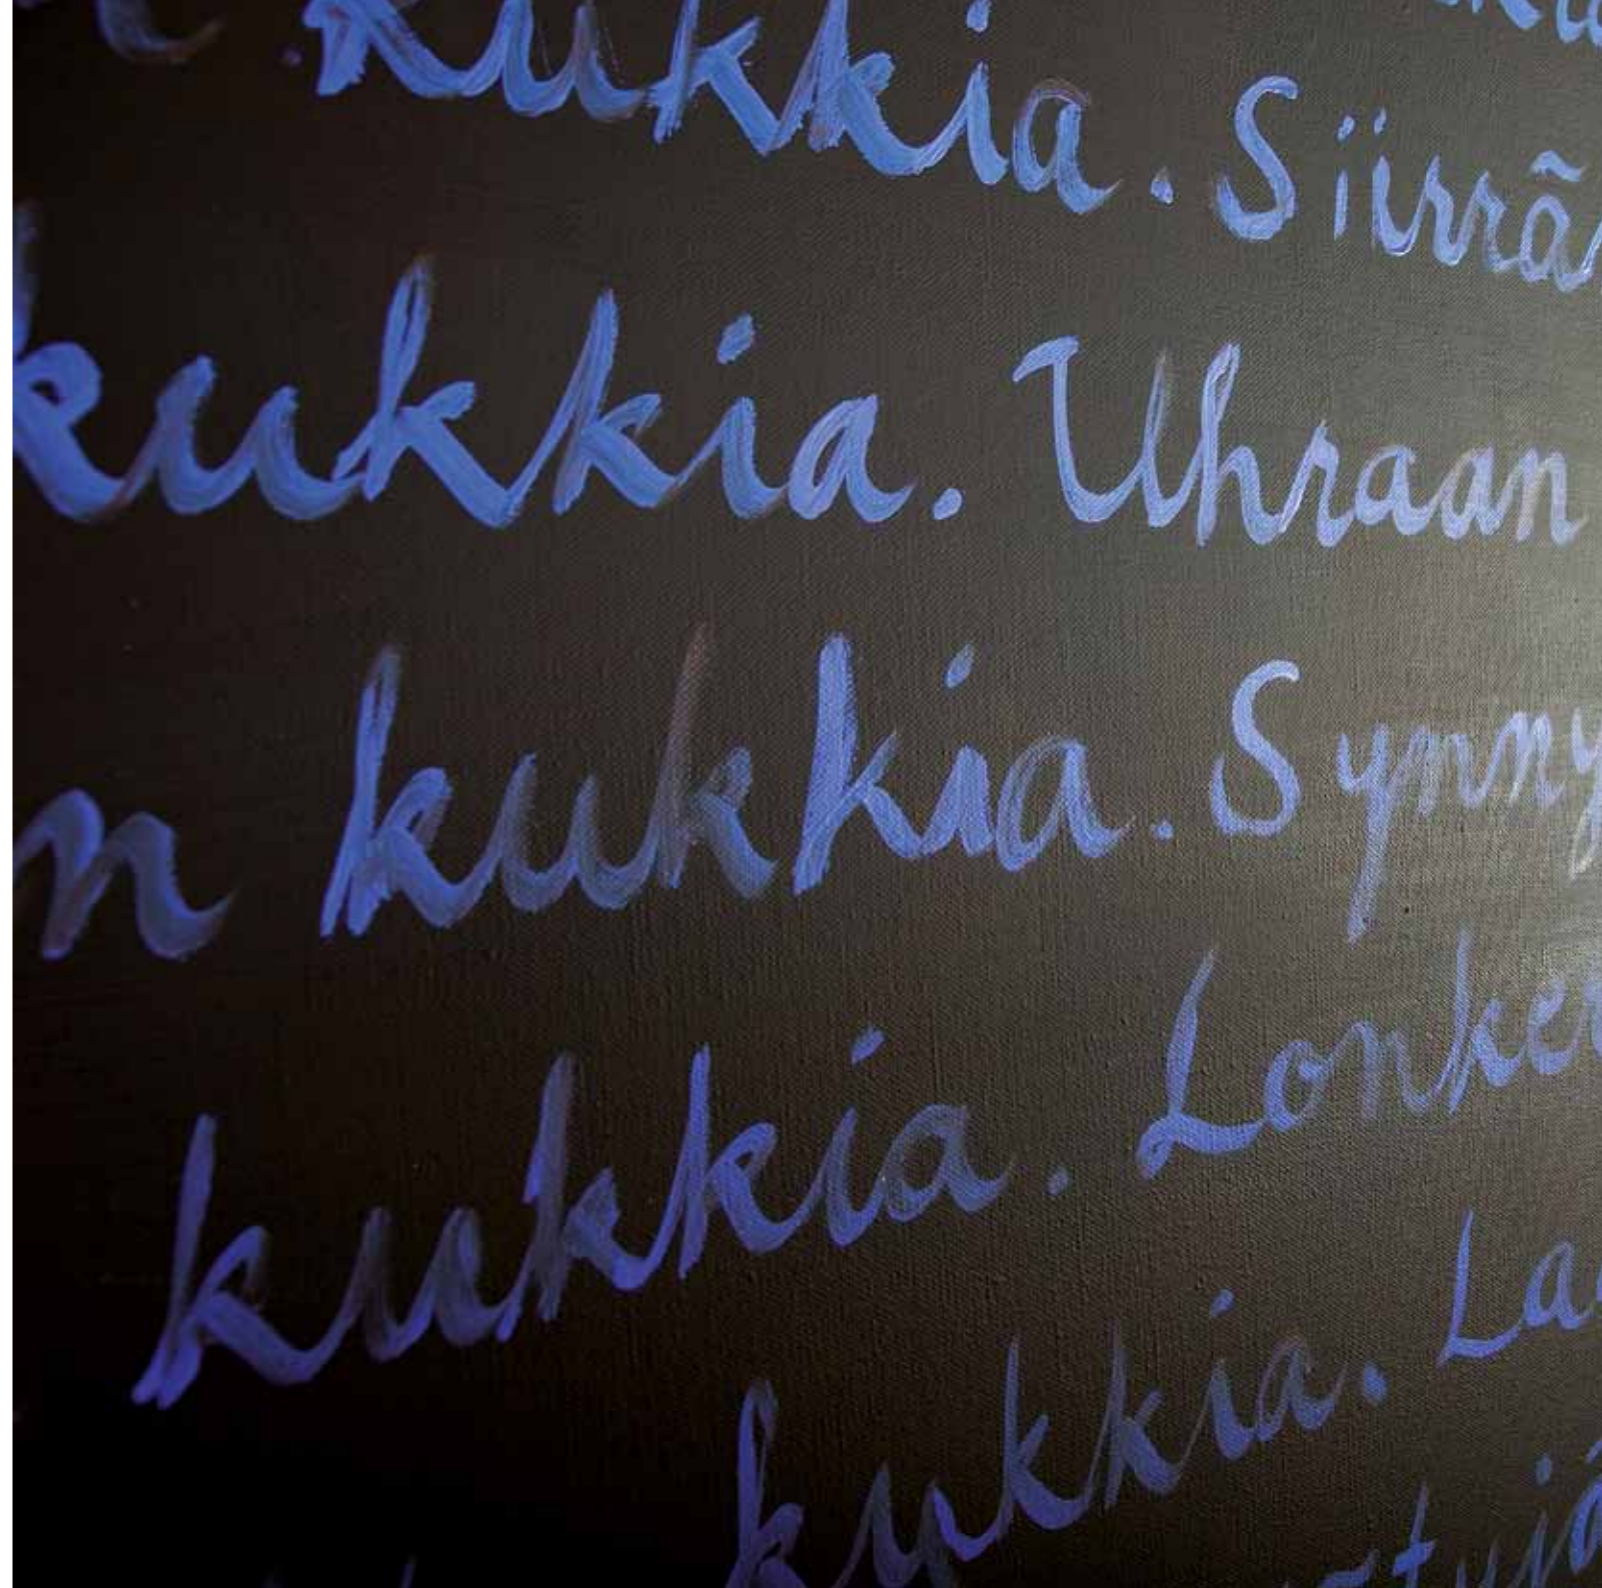 kukkia. Siirrä
kukkia. Uhraan
n kukkia. Synny
kukkia. Lonker
kukkia. La